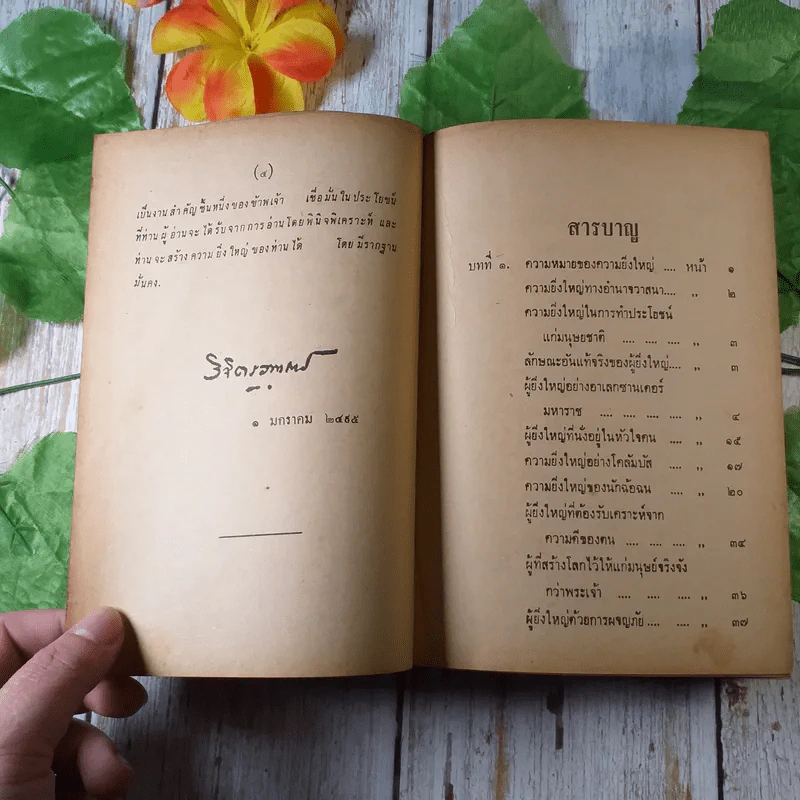 (๔)
เป็นงานสำคัญชิ้นหนึ่งของข้าพเจ้า เชื่อมั่นในประโยชน์
ที่ท่านผู้อ่านจะได้รับจากการอ่านโดยพินิจพิเคราะห์ และ
ท่านจะสร้างความยิ่งใหญ่ของท่านได้ โดยมีรากฐาน
มั่นคง.
วิจิตรวาทการ
๑ มกราคม ๒๔๙๕
สารบาญ
บทที่ ๑. ความหมายของความยิ่งใหญ่ .... หน้า ๑
ความยิ่งใหญ่ทางอำนาจวาสนา.... ,, ๒
ความยิ่งใหญ่ในการทำประโยชน์
แก่มนุษยชาติ .... .... .... ,, ๓
ลักษณะอันแท้จริงของผู้ยิ่งใหญ่.... ,, ๓
ผู้ยิ่งใหญ่อย่างอาเลกซานเดอร์
มหาราช .... .... .... .... ,, ๔
ผู้ยิ่งใหญ่ที่นั่งอยู่ในหัวใจคน .... ,, ๑๕
ความยิ่งใหญ่อย่างโคลัมบัส .... ,, ๑๗
ความยิ่งใหญ่ของนักฉ้อฉน .... ,, ๒๐
ผู้ยิ่งใหญ่ที่ต้องรับเคราะห์จาก
ความดีของตน .... .... .... ,, ๓๔
ผู้ที่สร้างโลกไว้ให้แก่มนุษย์จริงจัง
กว่าพระเจ้า .... .... .... ,, ๓๖
ผู้ยิ่งใหญ่ด้วยการผจญภัย .... .... ,, ๓๗